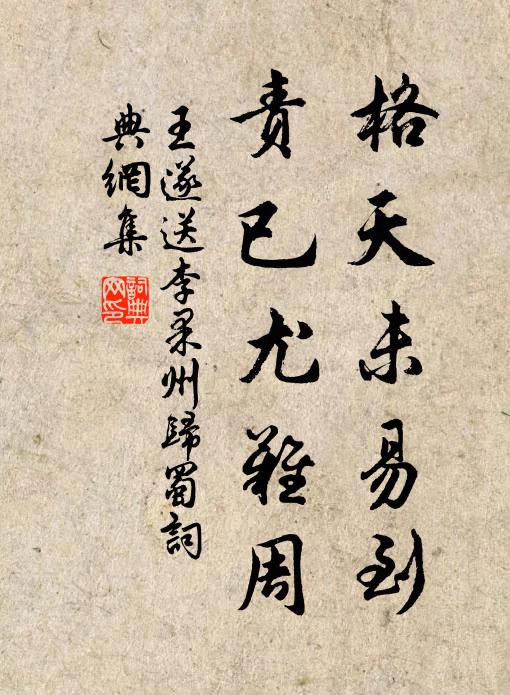 格天未易到
責已尤難周
王遂送李果州歸蜀詞
典網集
詞典
网印